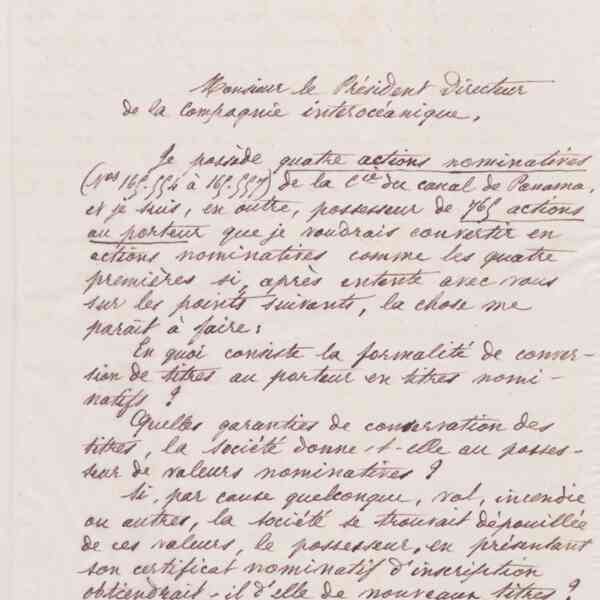 Monsieur le Président Directeur
de la Compagnie interocéanique,
Je possède quatre actions nominatives
(Nos 165.554 à 165.557) de la Cie du canal de Panama,
et je suis, en outre, possesseur de 765 actions
au porteur que je voudrais convertir en
actions nominatives comme les quatre
premières si, après entente avec vous
sur les points suivants, la chose me
paraît à faire:
En quoi consiste la formalité de conver-
sion de titres au porteur en titres nomi-
natifs?
Quelles garanties de conservation des
titres, la société donne-t-elle au posses-
seur de valeurs nominatives?
Si, par cause quelconque, vol, incendie
ou autres, la société se trouvait dépouillée
de ces valeurs, le possesseur, en présentant
son certificat nominatif d'inscription
obtiendrait-il d'elle de nouveaux titres?